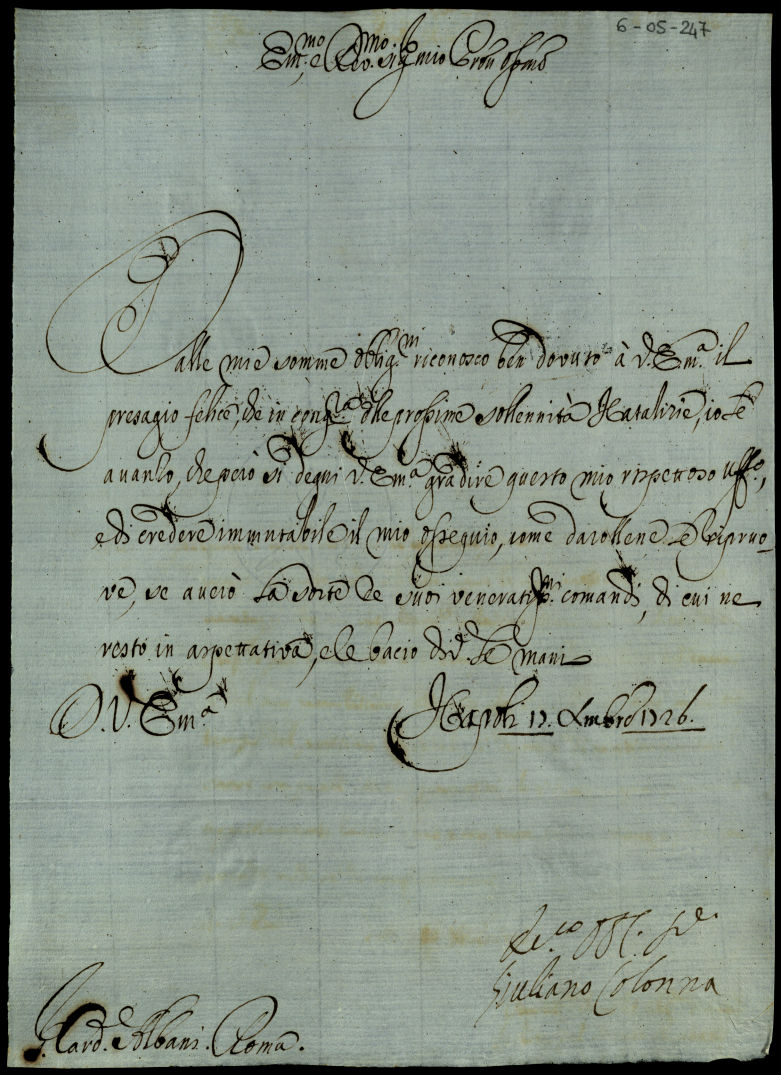 6-05-247
Em.mo e Rev.mo Sig.r mio Pron Oss.mo
Dalle mie somme oblig.ni riconosco ben dovuto à V. Em.a il
presagio felice, che in cong.a delle prossime sollennità Natalizie, io Le
avanzo, che però si degni V. Em.a gradire questo mio rispettoso uff.o,
e di credere immutabile il mio ossequio, come darollene le ripruo-
ve, se averò la sorte de suoi veneratiss.mi comandi, di cui ne
resto in aspettativa, e le bacio div.te le mani
D. V. Em.a
Napoli 17. Xmbre 1726.
Giuliano Colonna
S. Card.e Albani. Roma.